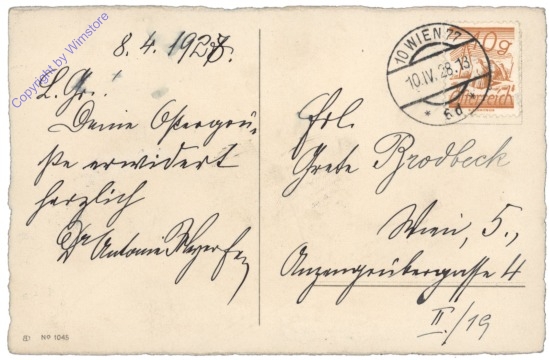 Copyright by Wimstore
8.4.1928.
L. Gr.!
Deine Ostergrü-
ße erwidert
herzlich
Dr Antonie
10 WIEN 77
10.IV.28.13
* 6d *
10g
Österreich
Frl.
Grete Brodbeck
Wien, 5.,
Anzengrubergasse 4
II./19
No 1045